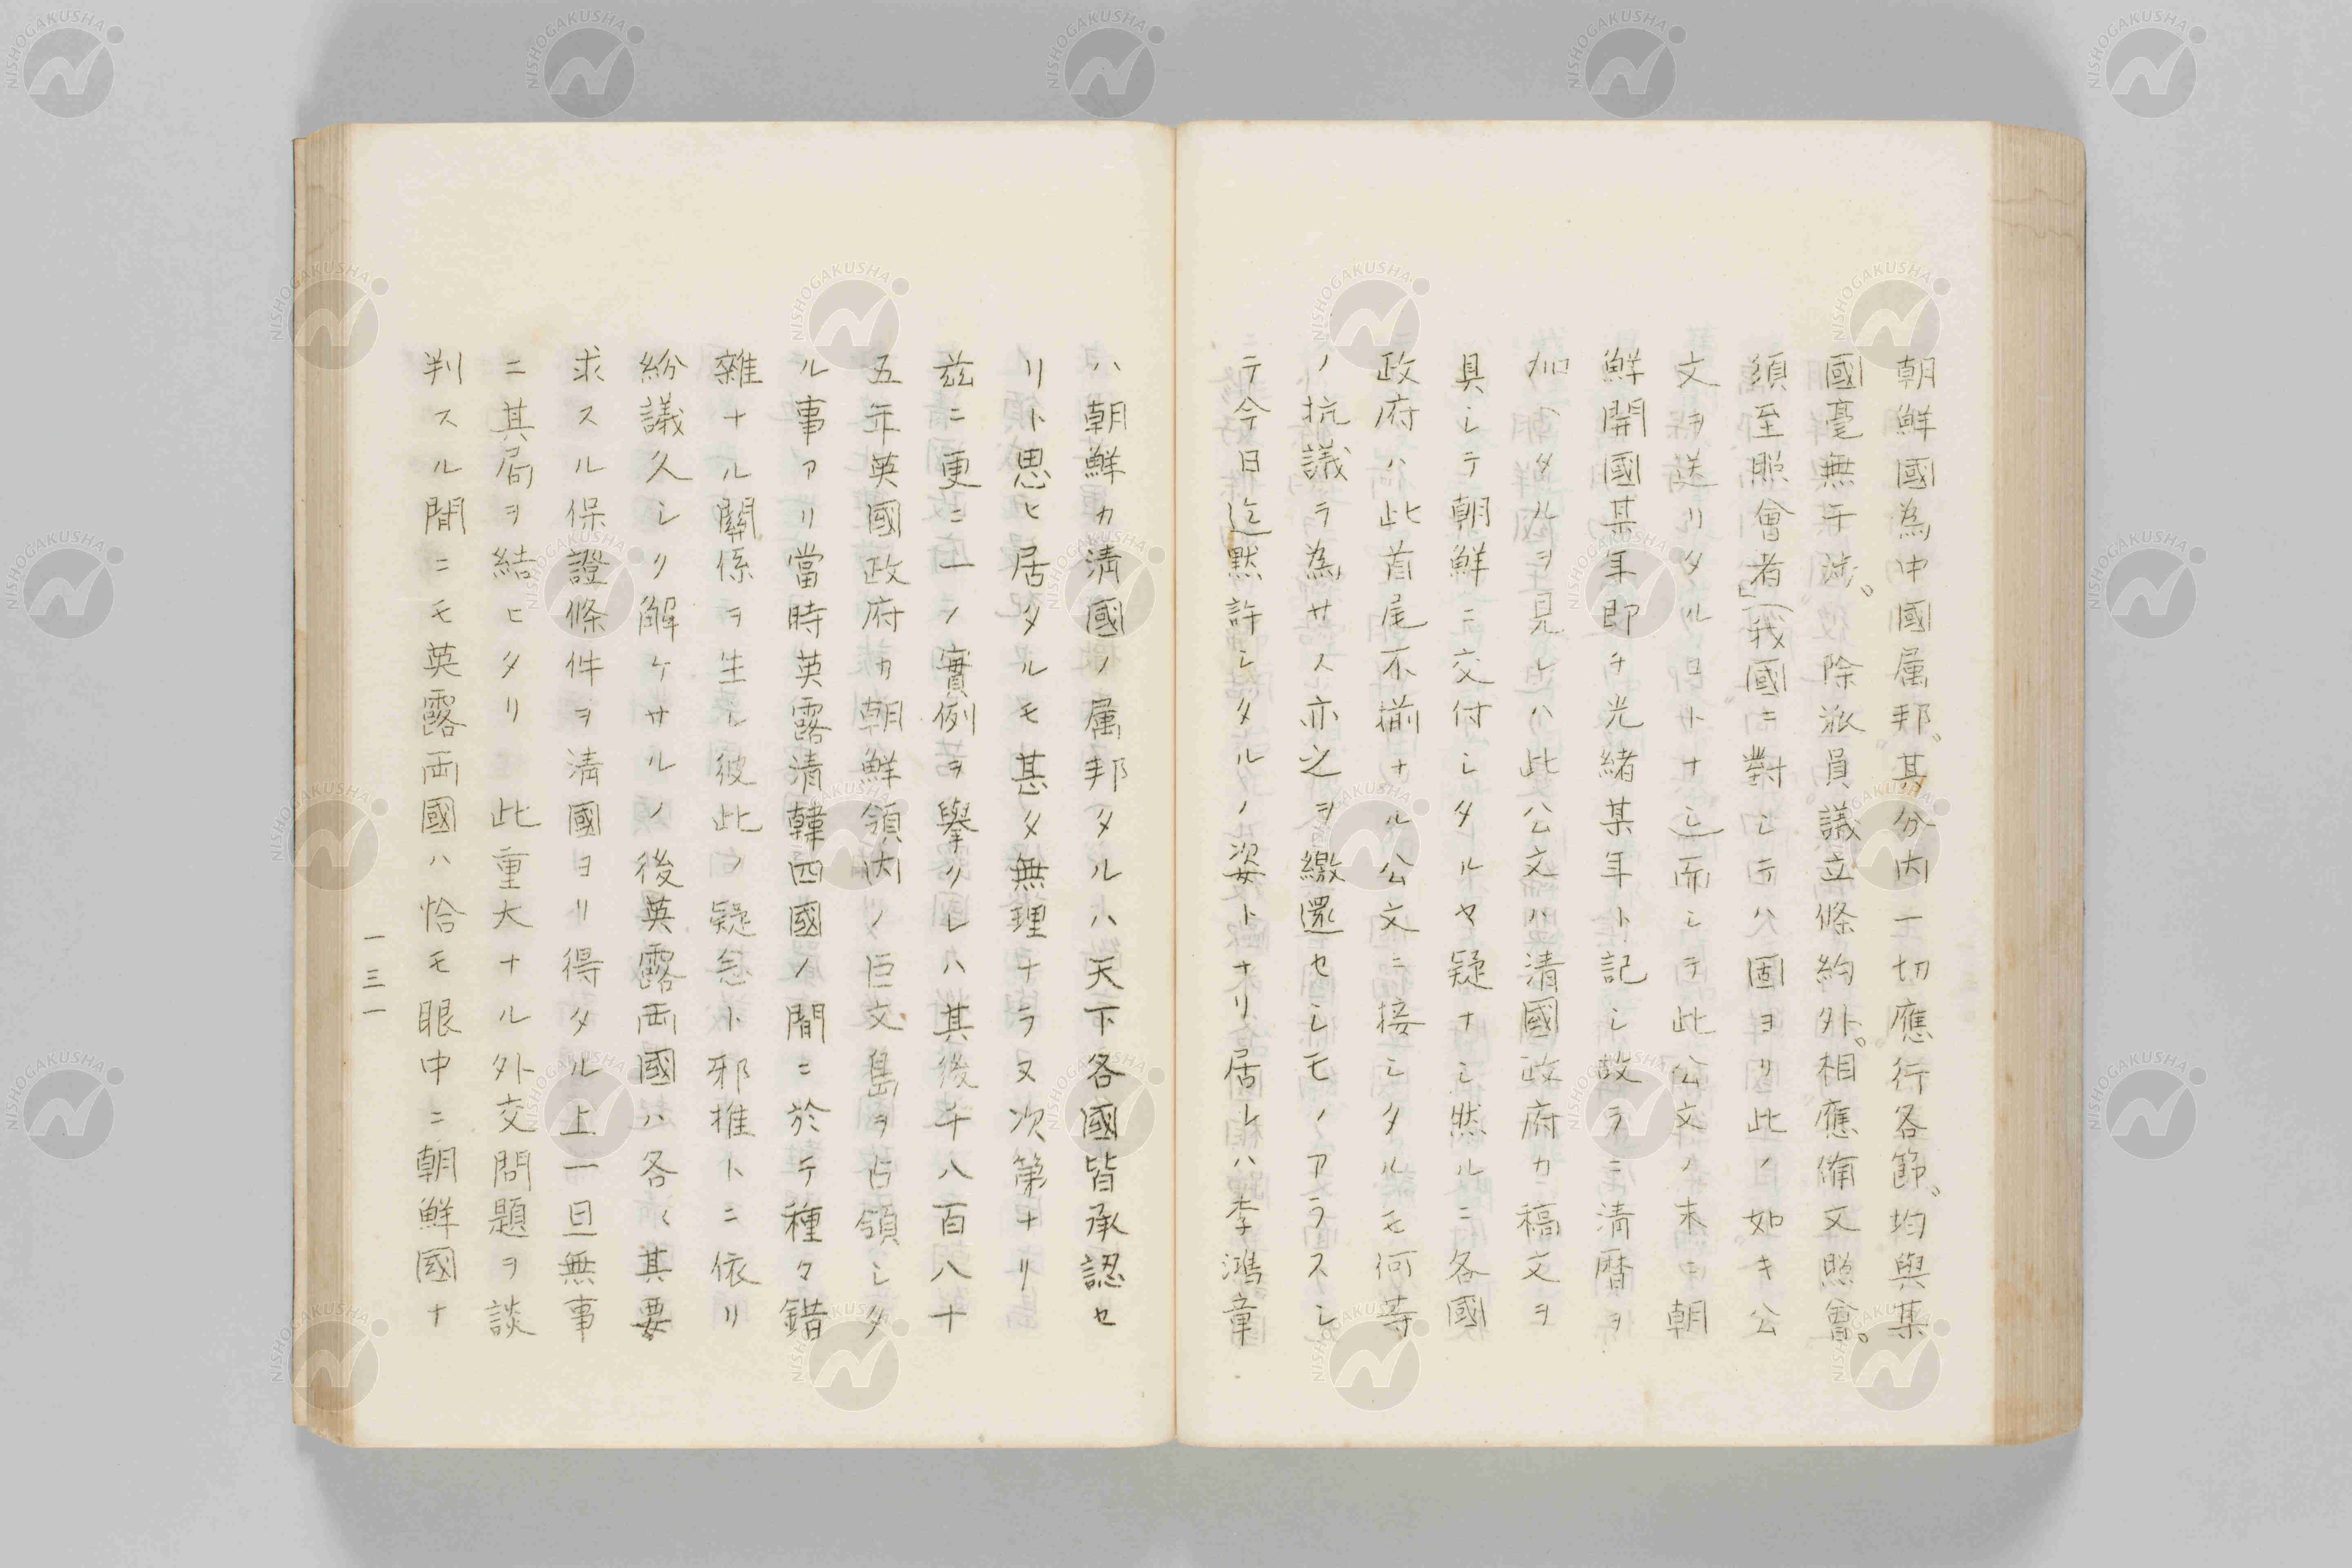 朝鮮國為中國属邦、其分内一切應行各節、均與某
國毫無干渉。除派員議立條約外。相應備文照會。
須至照會者」我國ニ對シテハ固ヨリ此ノ如キ公
文ヲ送リタルコトナシ而シテ此公文ノ末ニ朝
鮮開國某年即チ光緒某年ト記シ故ラニ清暦ヲ
加ヘタルヲ見レハ此公文ハ清國政府カ稿文ヲ
具シテ朝鮮ニ交付シタルヤ疑ナシ然ルニ各國
政府ハ此首尾不揃ナル公文ニ接シタルモ何等
ノ抗議ラ為サス亦之ヲ繳還セシモノアラスシ
テ今日迄黙許シタルノ姿トナリ居レハ李鴻章
ハ朝鮮カ清國ノ属邦タルハ天下各國皆承認セ
リト思ヒ居タルモ甚タ無理ナラヌ次第ナリ
茲ニ更ニ一ノ實例ヲ擧クレハ其後千八百八十
五年英國政府カ朝鮮領内ノ巨文島ヲ占領シタ
ル事アリ當時英露清韓四國ノ間ニ於テ種々錯
雜ナル關係ヲ生シ彼此ノ疑念ト邪推トニ依リ
紛議久シク解ケサルノ後英露両國ハ各〱其要
求スル保證條件ヲ清國ヨリ得タル上一旦無事
ニ其局ヲ結ヒタリ 此重大ナル外交問題ヲ談
判スル間ニモ英露両國ハ恰モ眼中ニ朝鮮國ナ
一三一
NISHOGAKUSHA